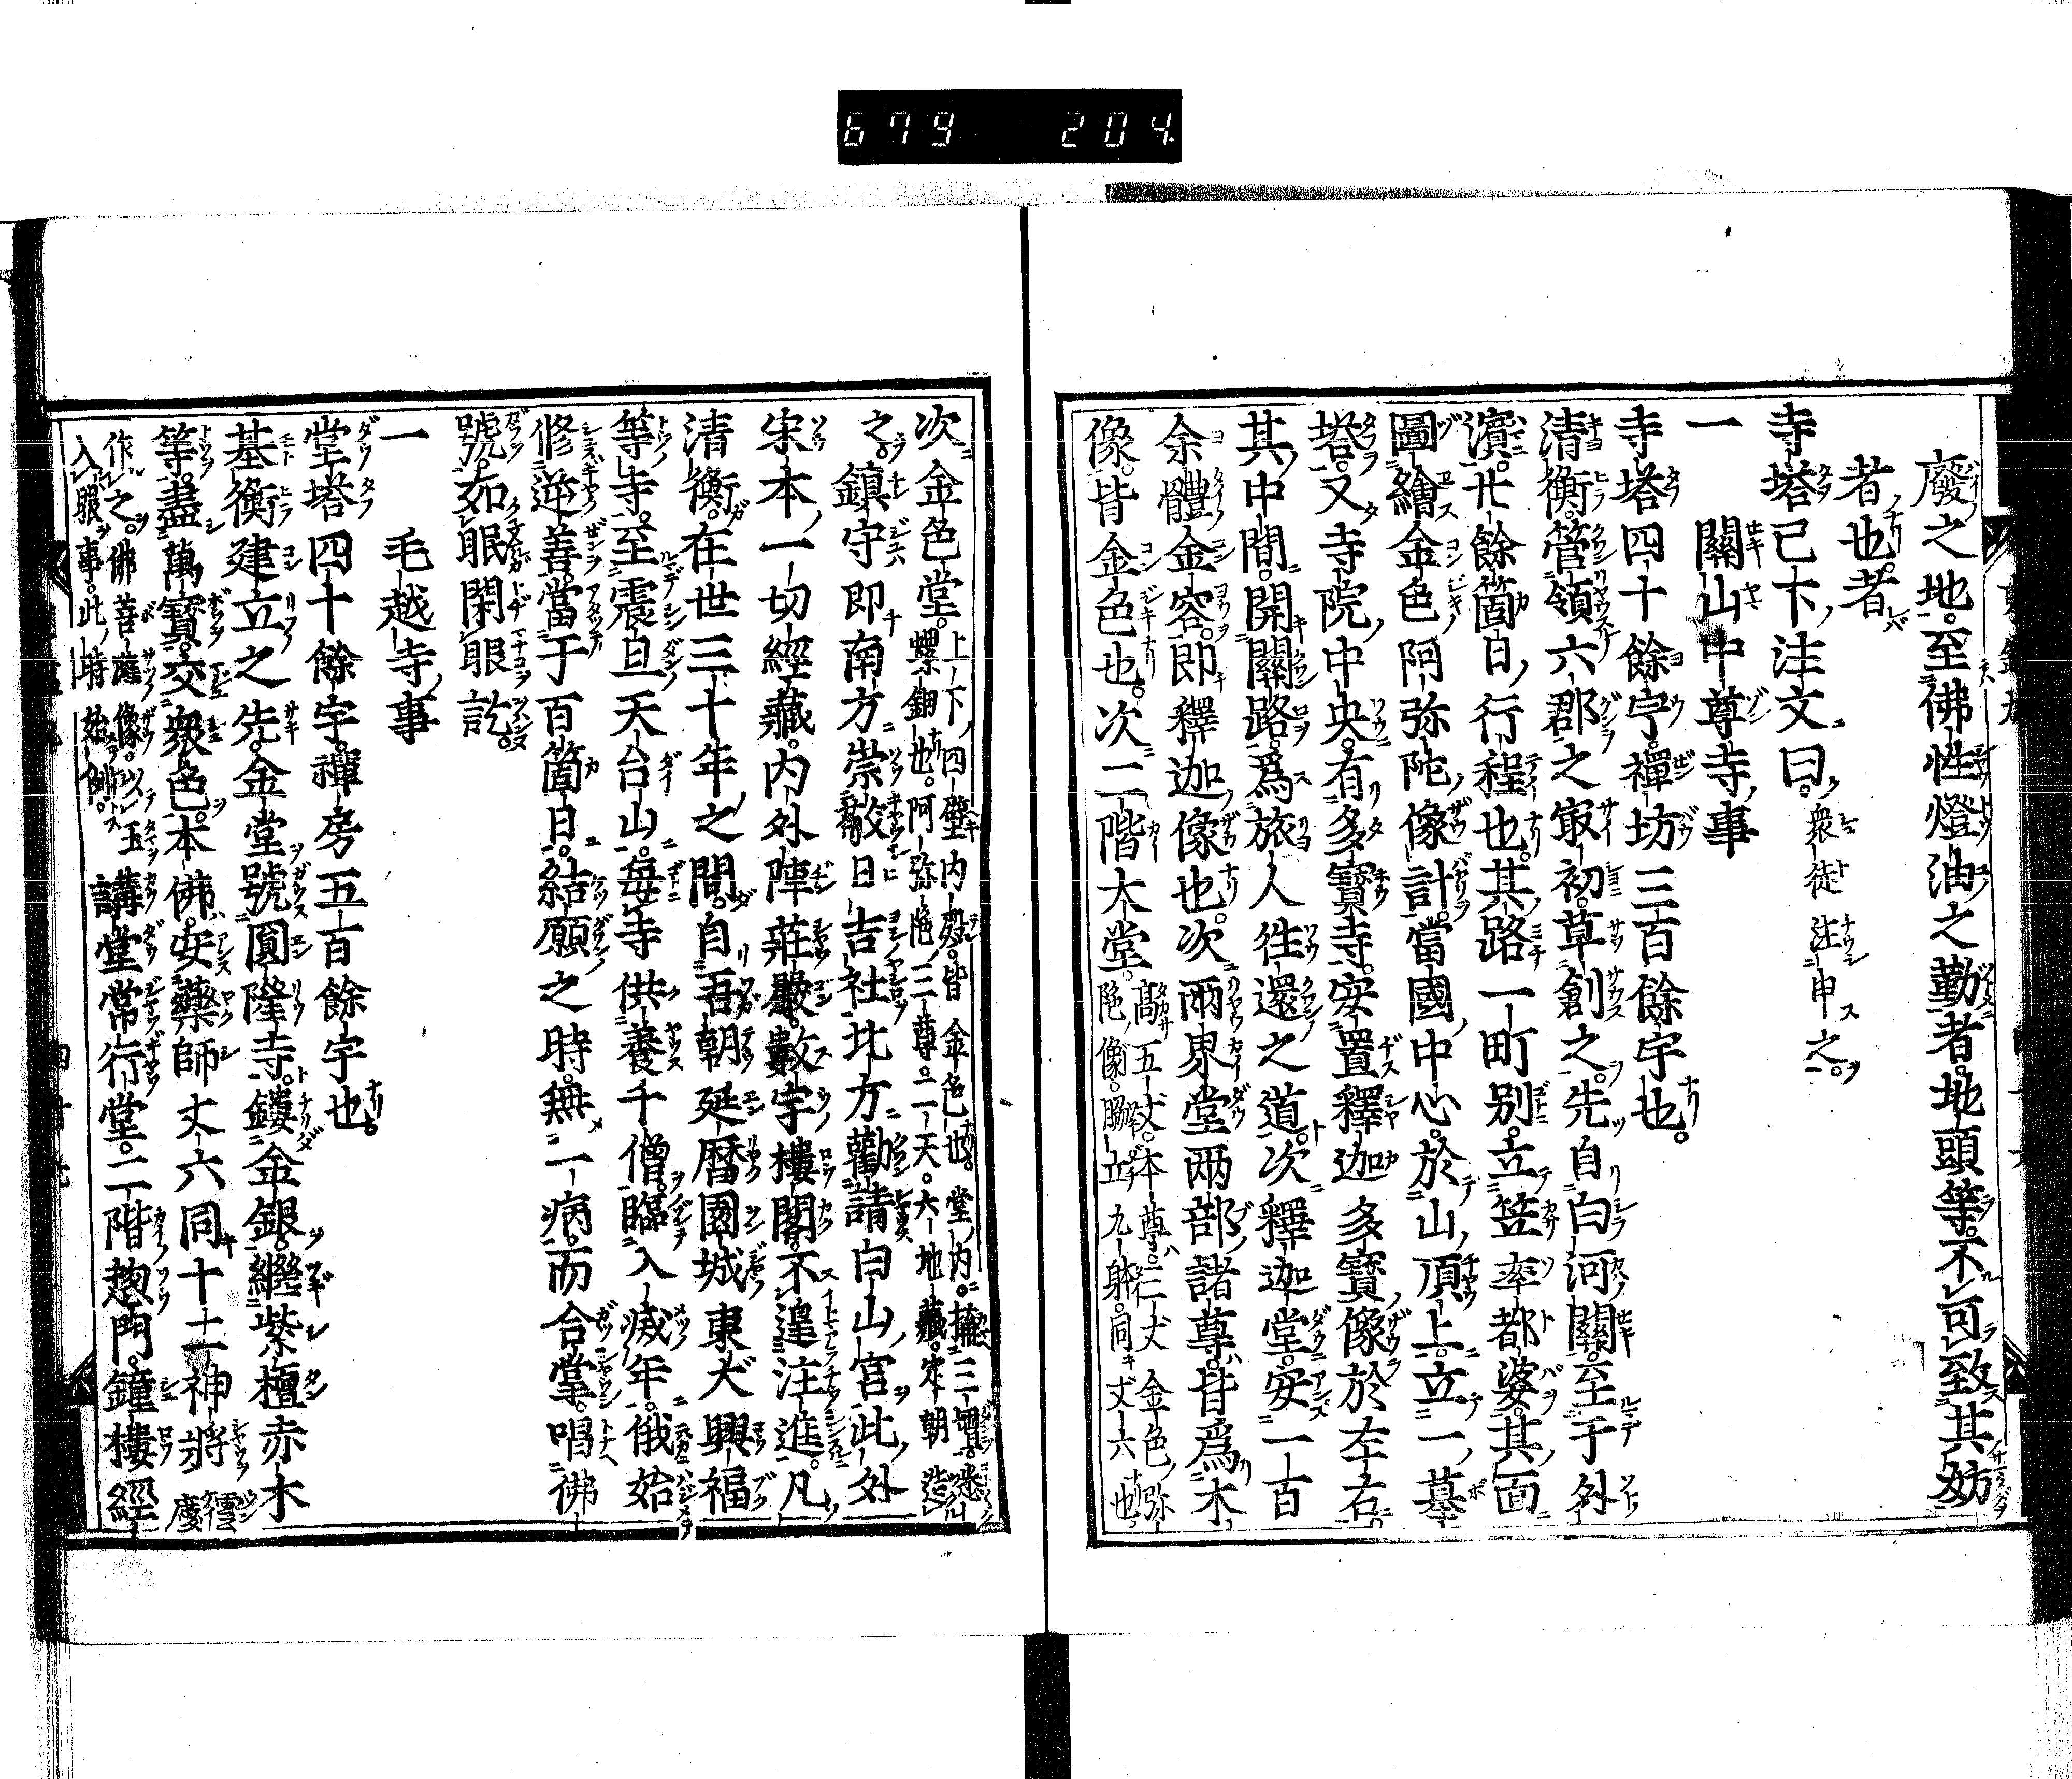 679 204
廢之地。至佛性燈油之勤者。地頭等。不可致其妨
者也。者
寺塔已下注文曰。衆徒注申之。
一 關山中尊寺事
寺塔四十餘宇。禪坊三百餘宇也。
清衡。管領六郡之㝡初。草創之。先自白河關。至于外
濱。廿餘箇日行程也。其路一町別。立笠率都婆。其面
圖繪金色阿弥陀像。計當國中心。於山頂上。立一墓
塔。又寺院中央。有多寶寺。安置釋迦多寶像於左右。
其中間。開關路。爲旅人徃還之道。次釋迦堂。安一百
余體金容。即釋迦像也。次兩界堂兩部諸尊。皆爲木
像。皆金色也。次二階大堂。高五丈。本尊。三丈金色弥
陁像。脇立九躰。同丈六也
次金色堂。上下四壁内殿。皆金色也。堂内。搆三壇。悉
螺鈿也。阿弥陁三尊。二天。六地藏。定朝造
之。鎮守即南方崇敬日吉社。北方勸請白山宮。此外
宋本一切經藏。内外陣莊嚴。數宇樓閣。不遑注進。凡
清衡。在世三十年之間。自吾朝延曆園城東大興福
等寺。至震旦天台山。毎寺供養千僧。臨入滅年。俄始
修逆善。當于百箇日。結願之時。無一病。而合掌。唱佛
號。如眠閑眼訖。
一 毛越寺事
堂塔四十餘宇。禪房五百餘宇也。
基衡建立之。先金堂號圓隆寺。鏤金銀。繼紫檀赤木
等。盡萬寶。交衆色。本佛。安藥師丈六。同十二神將雲慶
作之。佛菩薩像。以玉
入眼事。此時始例。講堂常行堂。二階惣門。鐘樓經